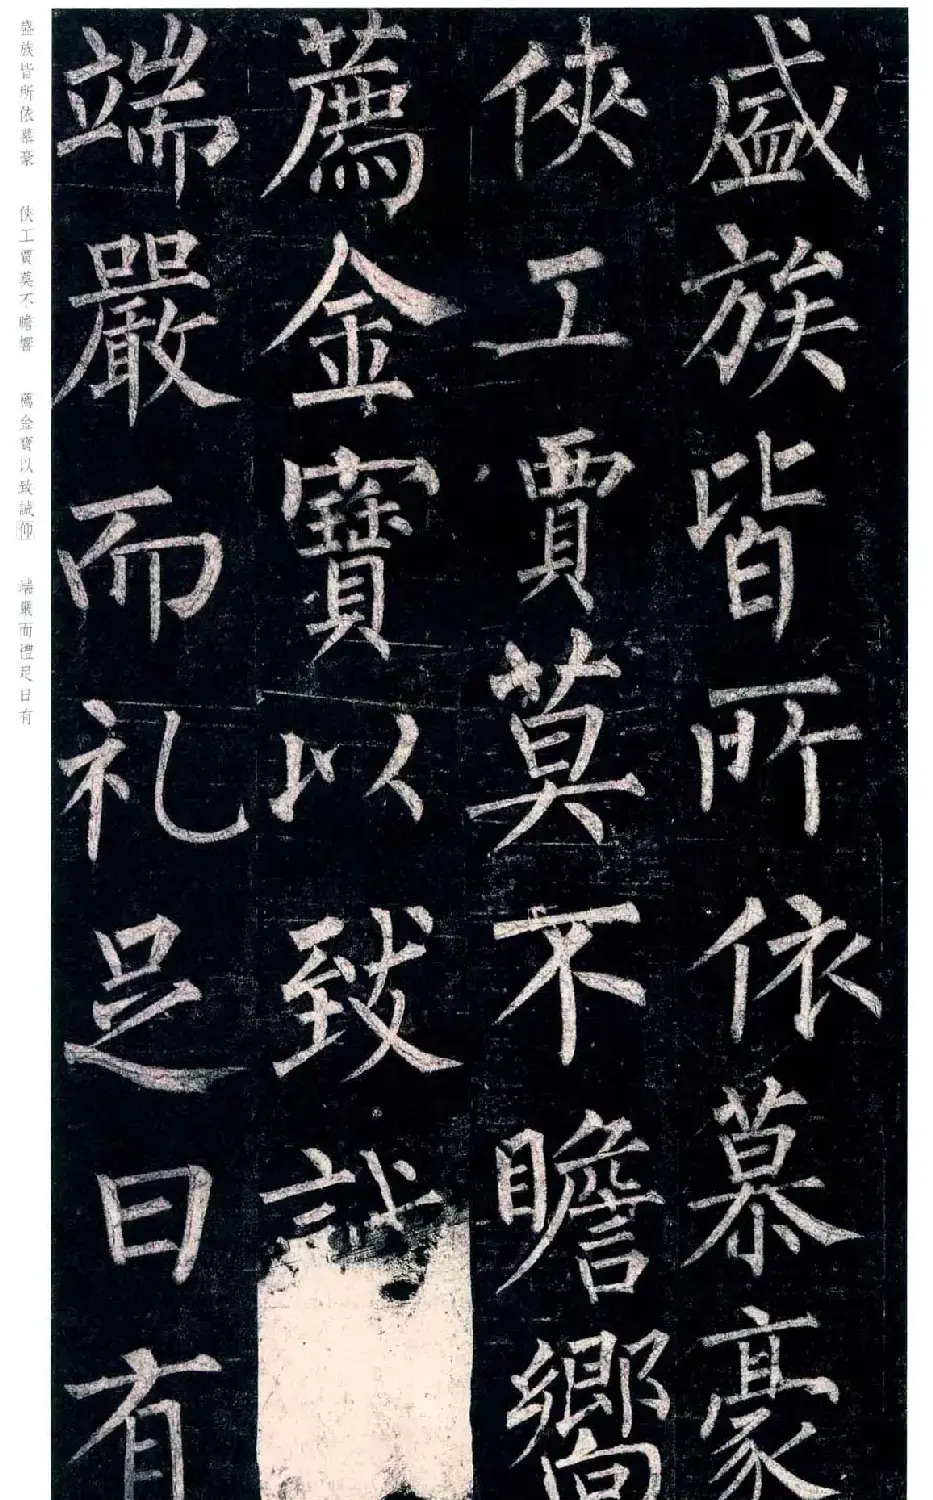 盛族皆所依慕豪
俠工賈莫不瞻嚮
薦金寶以致誠
端嚴而礼足日有
盛族皆所依慕豪 俠工賈莫不瞻響 薦金寶以致誠仰 端嚴而禮足日有